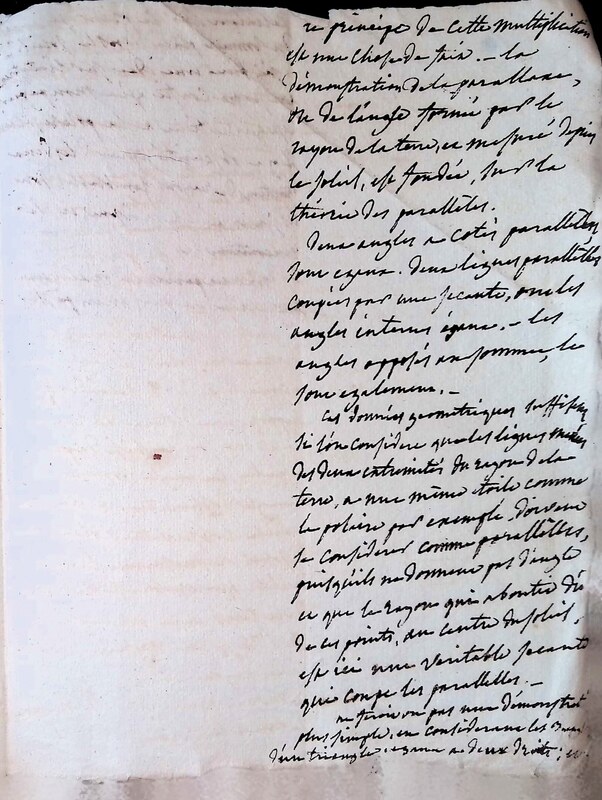 re principe de cette multiplication
est une chose de fain. — la
démonstration de la parallaxe,
ou de l'angle formé par le
rayon de la terre, et mesuré depuis
le soleil, est fondée, sur la
théorie des parallèles.
Deux angles a cotés parallèles
sont egaux. Deux lignes parallèles
coupées par une secante, ont les
angles internes égaux. — les
angles opposés au sommet, le
sont egalement. —
Ces données geometriques suffisent
si l'on considere que les lignes
des deux extremités du rayon de la
terre, a une même étoile comme
la polaire par exemple doivent
se considerer comme parallèles,
puisqu'ils ne donnent pas d'angle
et que le rayon qui aboutit
de ces points, au centre du soleil,
est ici une veritable secante
qui coupe les parallèles. —
ne feroit on pas une démonstrat
plus simple, en considerant les
d'un triangle, egaux a deux droits; et